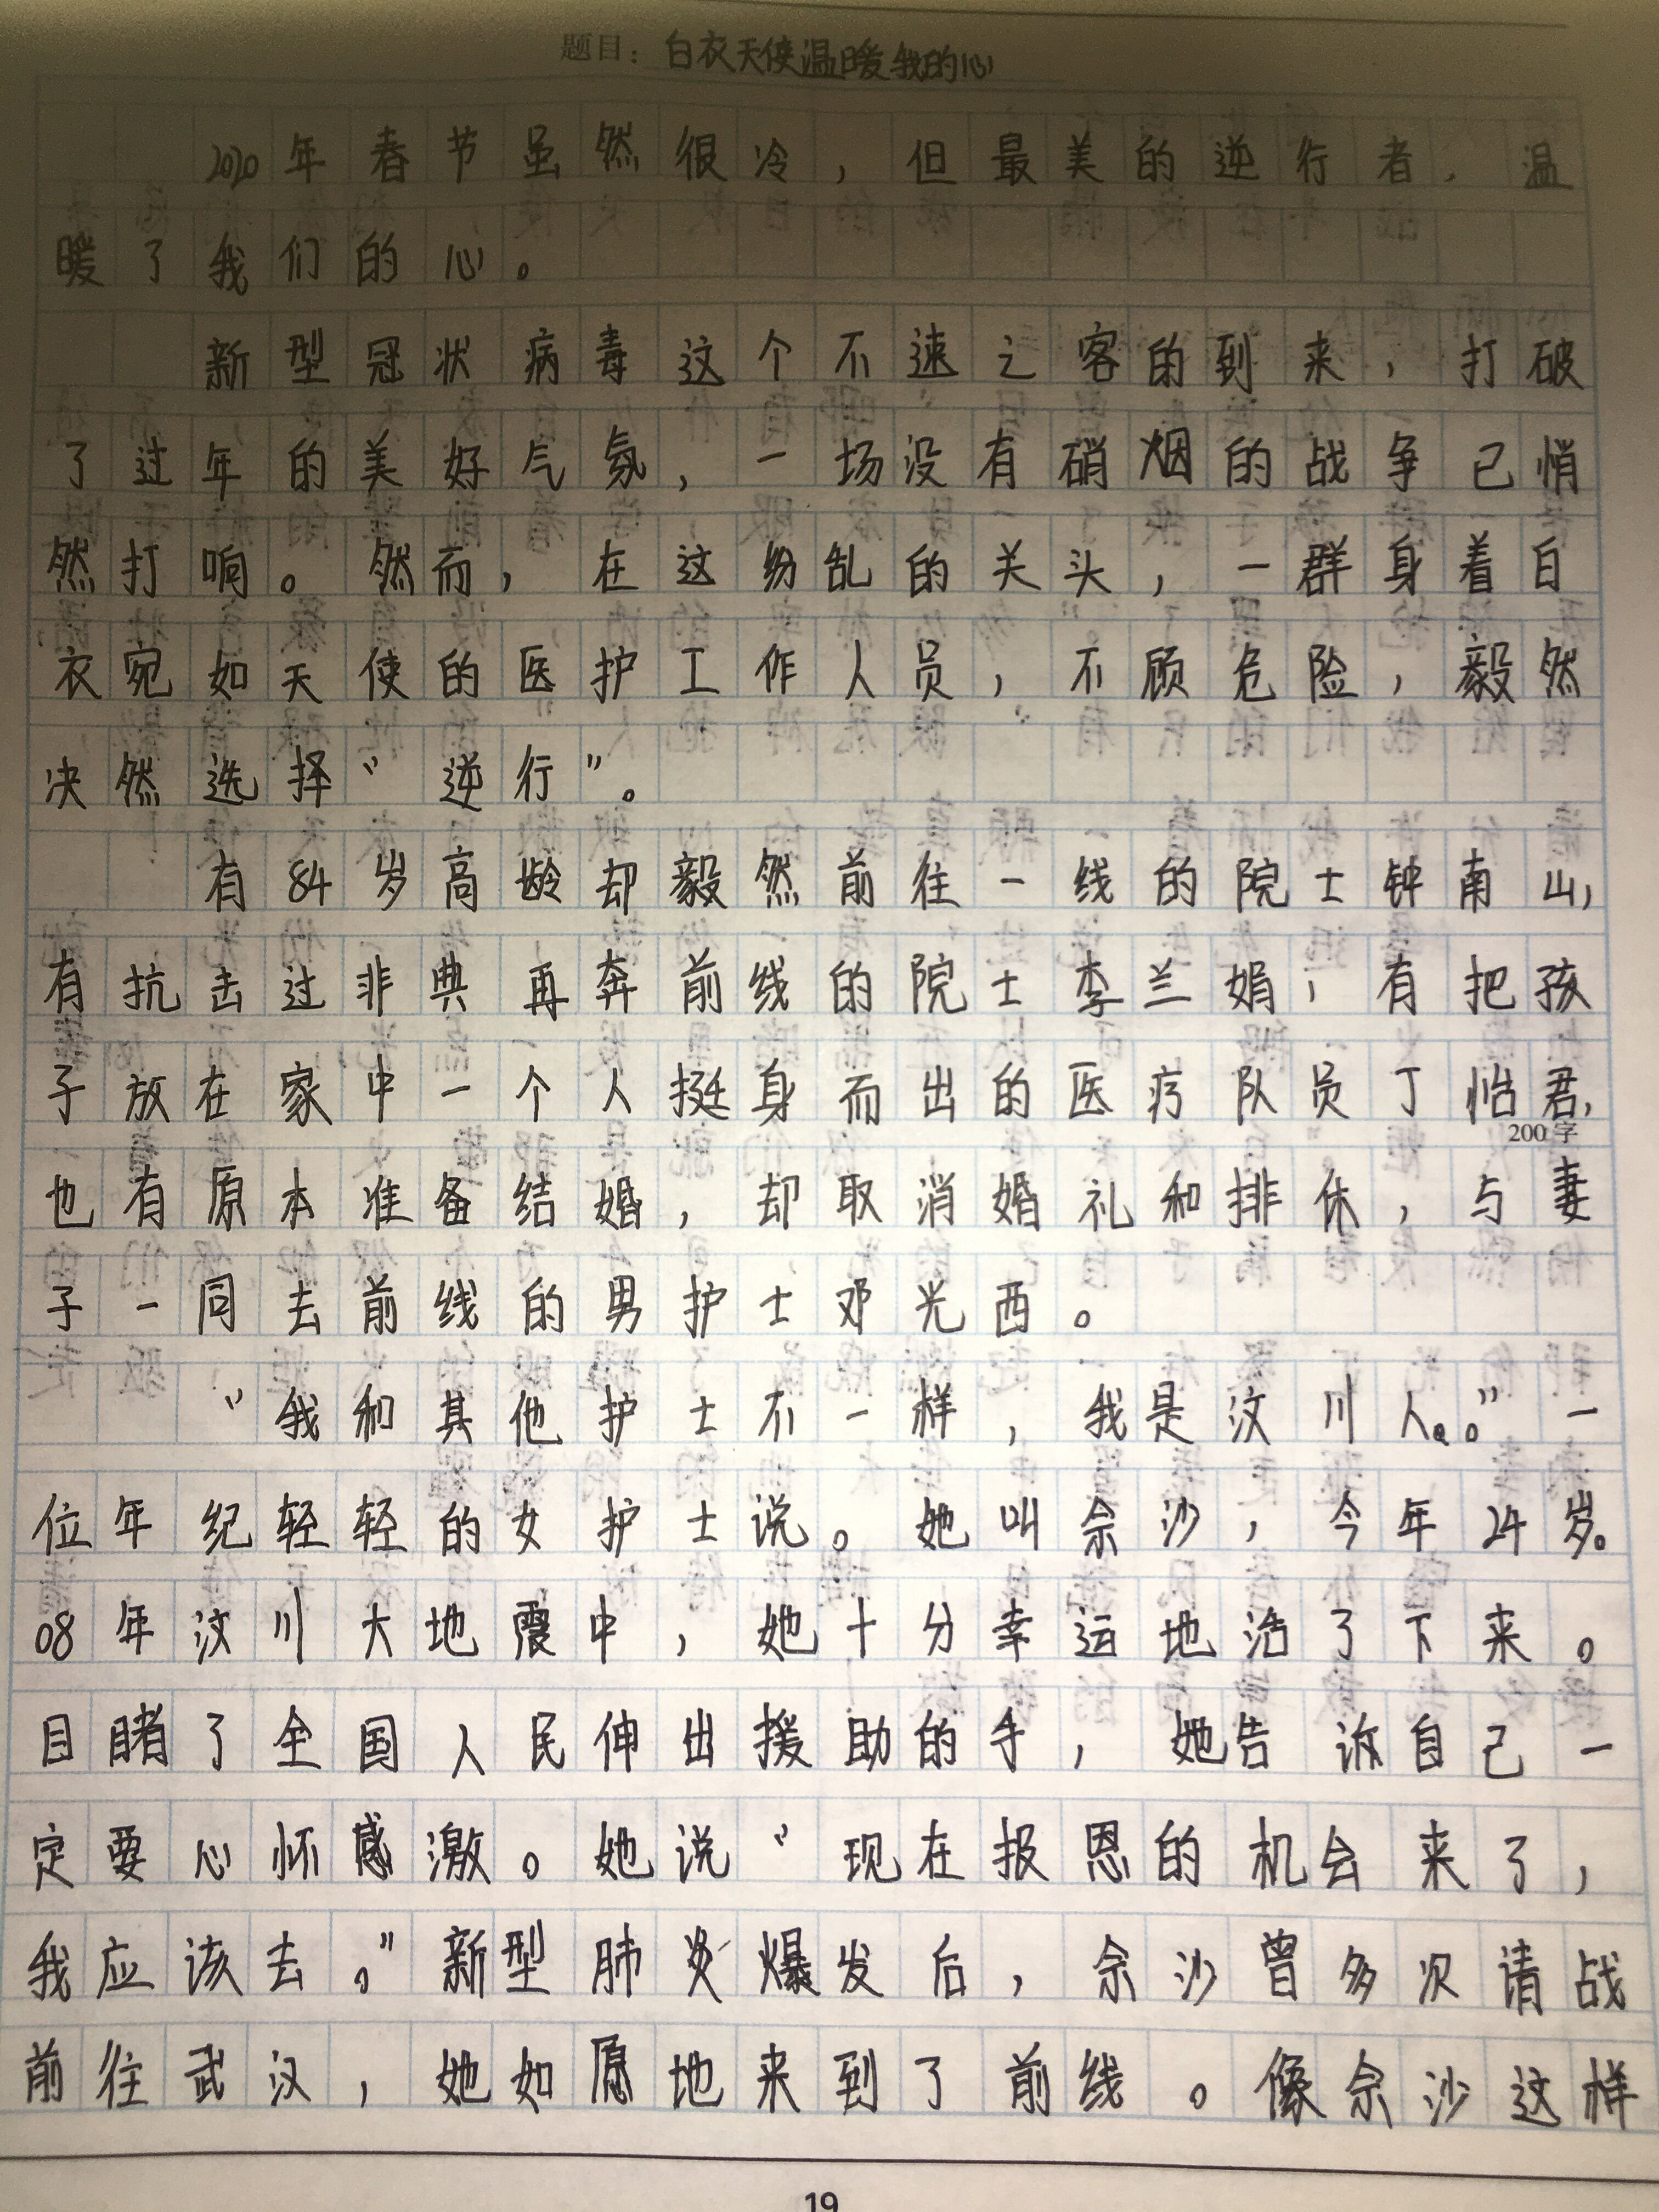 题目：白衣天使温暖我的心
2020年春节虽然很冷，但最美的逆行者，温
暖了我们的心。
新型冠状病毒这个不速之客的到来，打破
了过年的美好气氛，一场没有硝烟的战争已悄
然打响。然而，在这纷乱的关头，一群身着白
衣宛如天使的医护工作人员，不顾危险，毅然
决然选择“逆行”。
有84岁高龄却毅然前往一线的院士钟南山，
有抗击过非典再奔前线的院士李兰娟；有把孩
子放在家中一个人挺身而出的医疗队员丁君，
200字
也有原本准备结婚，却取消婚礼和排休，与妻
子一同去前线的男护士邓光西。
“我和其他护士不一样，我是汶川人。”一
位年纪轻轻的女护士说。她叫佘沙，今年24岁。
08年汶川大地震中，她十分幸运地活了下来。
目睹了全国人民伸出援助的手，她告诉自己一
定要心怀感激。她说“现在报恩的机会来了，
我应该去。”新型肺炎爆发后，佘沙曾多次请战
前往武汉，她如愿地来到了前线。像佘沙这样
19